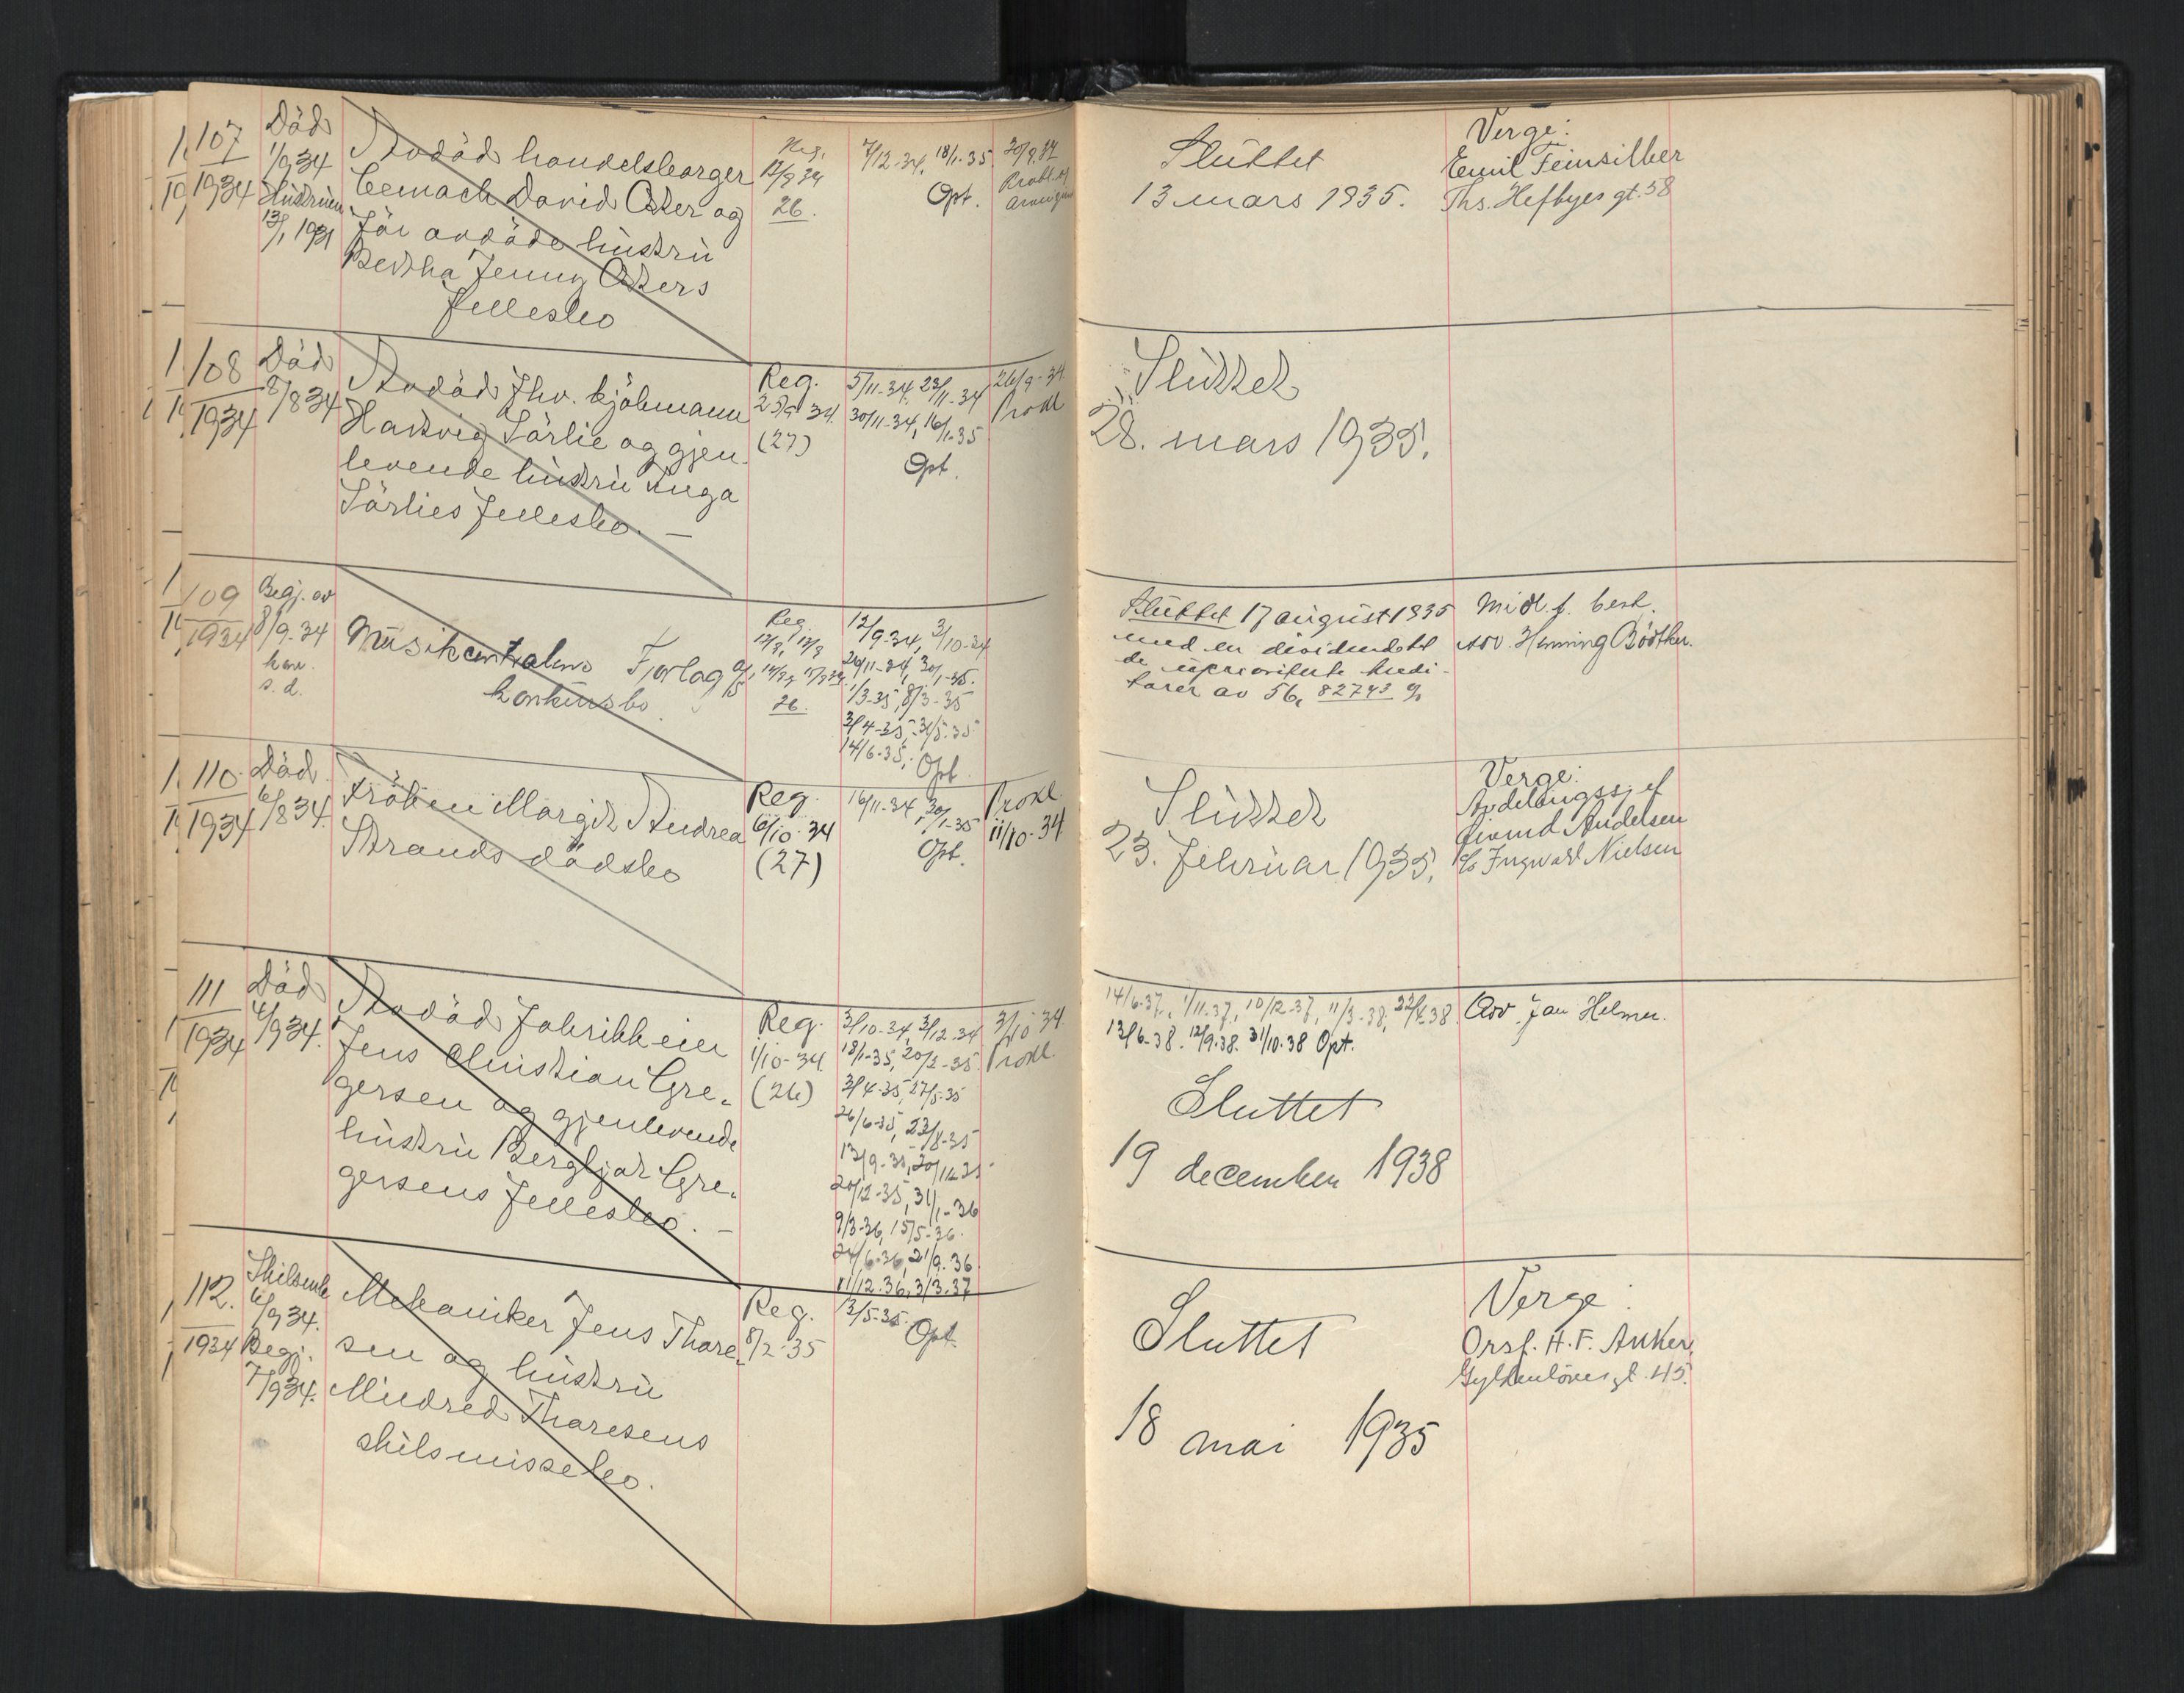 107
1934
Död
1/9 34
Hustruen
13/1 1931
Avdöd handelsborger
Cemach David Oster og
för avdöde hustru
Bertha Jenny Osters
fellesbo
Reg.
12/9 34
26.
7/12-34, 18/1-35
Opt.
20/9 34
Slüttet
13 mars 1935.
Verge:
Emil Feinsilber
Ths. Heftyes gt. 58
108
1934
Död
8/8 34
Avdöd fhv. kjöbmann
Hartvig Sörlie og gjen-
levende hustru Inga
Sörlies fellesbo. —
Reg.
25/9 34.
(27)
5/11-34, 23/11-34
30/11-34, 16/1-35
Opt.
26/9-34
Prokl
Sluttet
28. mars 1935.
109
1934
Begj. av
8/9-34
kon.
s. d.
Musikcentralens Forlag %
konkursbo
Reg.
26.
12/9-34, 3/10-34
26/11-34, 30/1-35.
1/3-35, 8/3-35
3/4-35, 31/5-35
14/6-35, Opt
Sluttet 17 august 1935
med en dividende til
de uprioriterte kredi-
torer av 56, 82743 %
Midl. f. best.
Adv. Henning Bödtker.
110
1934
Död
6/8 34.
Fröken Margit Andrea
Strands dödsbo
Reg.
6/10-34
(27)
16/11-34, 30/1-35
Opt.
Prokl.
11/10-34
Sluttet
23. februar 1935.
Verge:
Avdelingssjef
Öivind Andersen
c/o Ingwald Nielsen
111
1934
Död
4/9 34.
Avdöd fabrikkeier
Jens Christian Gre-
gersen og gjenlevende
hustru Bergljot Gre-
gersens fellesbo. —
Reg.
1/10-34
(26)
3/10-34, 3/12-34
18/1-35, 20/2-35
3/4-35, 27/5-35
26/6-35, 23/8-35
13/9-35, 20/11-35
20/12-35, 31/1-36
9/3-36, 15/5-36.
24/6-36, 21/9-36
11/12-36, 3/3-37
3/10 34.
Prokl.
14/6-37, 1/11-37, 10/12-37, 11/3-38, 22/4-38.
13/6-38. 12/9-38. 31/10-38 Opt.
Sluttet
19 december 1938
Adv. Jan Helmer.
112.
1934
Skilsmisse
6/9 34.
Begj.
7/9 34.
Mekaniker Jens Thore-
sen og hustru
Mildred Thoresens
skilsmissebo.
Reg.
8/2-35
3/5-35.
Opt.
Sluttet
18 mai 1935
Verge:
Orsf. H. F. Anker,
Gyldenlövesgt. 45.